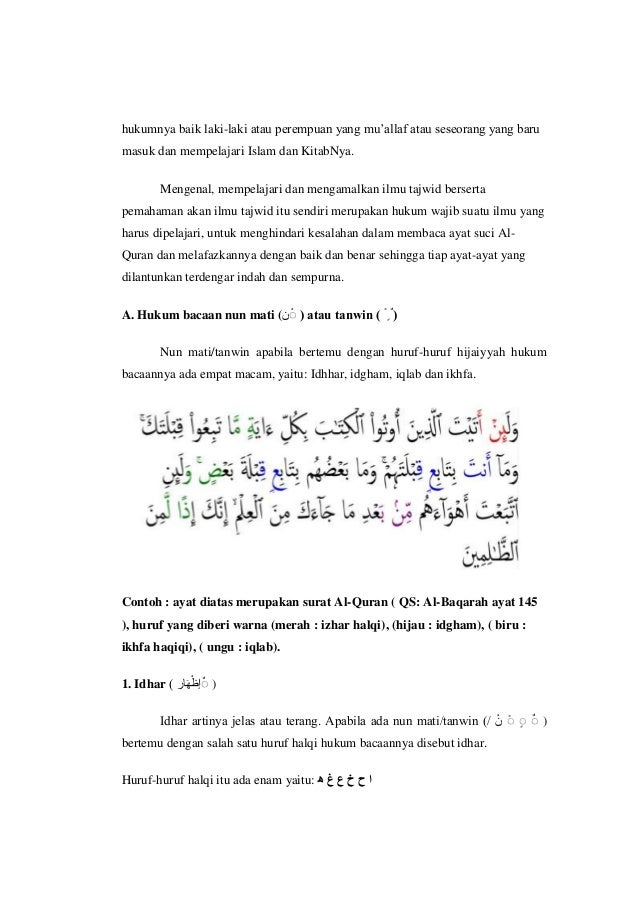 hukumnya baik laki-laki atau perempuan yang mu’allaf atau seseorang yang baru
masuk dan mempelajari Islam dan KitabNya.
Mengenal, mempelajari dan mengamalkan ilmu tajwid berserta
pemahaman akan ilmu tajwid itu sendiri merupakan hukum wajib suatu ilmu yang
harus dipelajari, untuk menghindari kesalahan dalam membaca ayat suci Al-
Quran dan melafazkannya dengan baik dan benar sehingga tiap ayat-ayat yang
dilantunkan terdengar indah dan sempurna.
A. Hukum bacaan nun mati (نْ ) atau tanwin ( ـًـٍـٌ )
Nun mati/tanwin apabila bertemu dengan huruf-huruf hijaiyyah hukum
bacaannya ada empat macam, yaitu: Idhhar, idgham, iqlab dan ikhfa.
وَلَئِنْ أَتَيْتَ ٱلَّذِينَ أُوتُوا۟ ٱلْكِتَٰبَ بِكُلِّ ءَايَةٍ مَّا تَبِعُوا۟ قِبْلَتَكَ ۚ
وَمَآ أَنتَ بِتَابِعٍ قِبْلَتَهُمْ ۚ وَمَا بَعْضُهُم بِتَابِعٍ قِبْلَةَ بَعْضٍ ۚ وَلَئِنِ
ٱتَّبَعْتَ أَهْوَآءَهُم مِّنۢ بَعْدِ مَا جَآءَكَ مِنَ ٱلْعِلْمِ ۙ إِنَّكَ إِذًا لَّمِنَ
ٱلظَّٰلِمِينَ
Contoh : ayat diatas merupakan surat Al-Quran ( QS: Al-Baqarah ayat 145
), huruf yang diberi warna (merah : izhar halqi), (hijau : idgham), ( biru :
ikhfa haqiqi), ( ungu : iqlab).
1. Idhar ( إِظْهَارٌ )
Idhar artinya jelas atau terang. Apabila ada nun mati/tanwin (/ نْ ـٍ ـٌ )
bertemu dengan salah satu huruf halqi hukum bacaannya disebut idhar.
Huruf-huruf halqi itu ada enam yaitu: ا ح خ ع غ ه